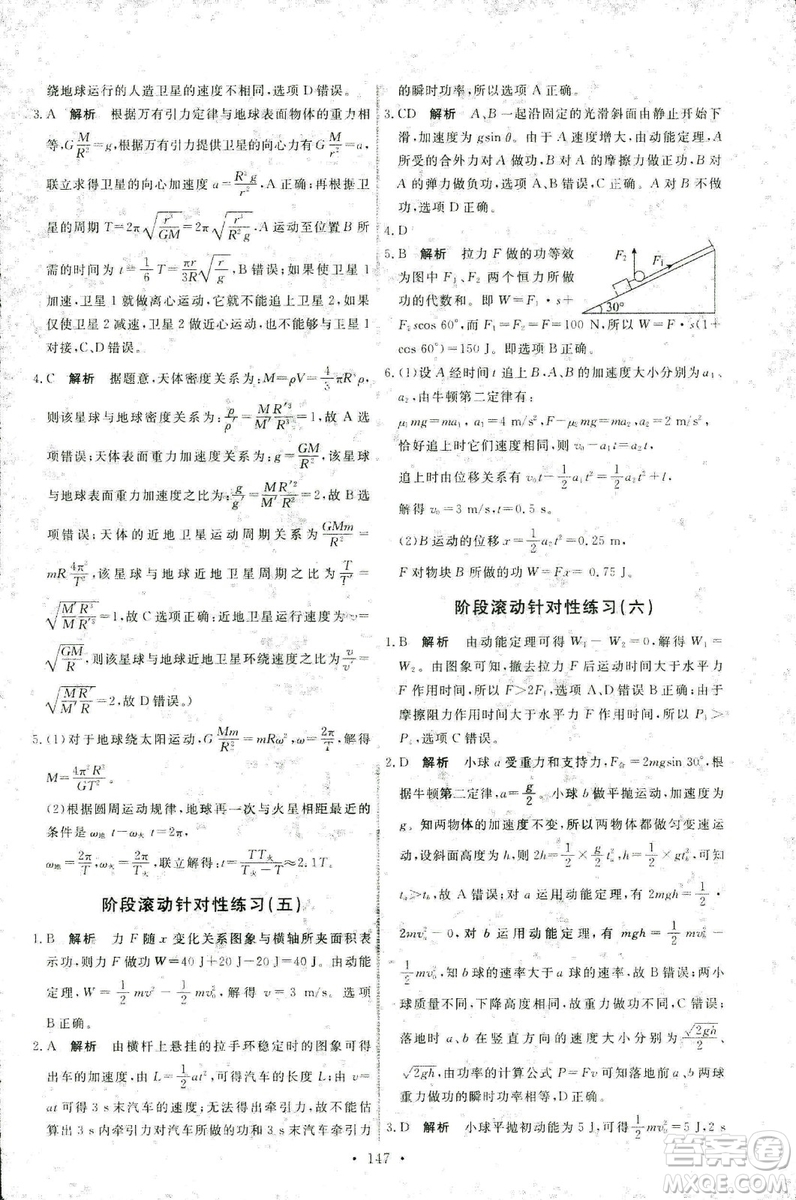 绕地球运行的人造卫星的速度不相同,选项 D 错误。
3. A 解析 根据万有引力定律与地球表面物体的重力相
等,G\frac{M}{R^2}=g,万有引力提供卫星的向心力有 G\frac{M}{r^2}=a,
联立求得卫星的向心加速度 a=\frac{R^2g}{r^2},A 正确;卫
星的周期 T=2π\sqrt{\frac{r^3}{GM}}=2π\sqrt{\frac{r^3}{R^2g}},A 运动至位置 B 所
需的时间为 t=\frac{1}{6}T=\frac{πr}{3R}\sqrt{\frac{r}{g}},B 错误;若卫星 1
加速,卫星 1 就会做离心运动,它就不能追上卫星 2,如果
仅使卫星 2 减速,卫星 2 做近心运动,也不能与卫星 1
对接,C、D 错误。
4. C 解析 据题意,天体密度关系为:M=ρV=\frac{4}{3}πR^3,
则该星球与地球密度关系为:\frac{ρ}{ρ'}=\frac{MR'^3}{M'R^3}=1,故 A 选
项错误;天体表面重力加速度关系为:\frac{GM}{R^2}=g,该星球
与地球表面重力加速度之比为:\frac{g}{g'}=\frac{MR'^2}{M'R^2}=2,故 B 选
项错误;天体的近地卫星运动周期关系为\frac{GMm}{R^2}=
mR\frac{4π^2}{T^2},该星球与地球的近地卫星周期之比为:\frac{T}{T'}=
\sqrt{\frac{M'R^3}{MR'^3}}=1,故 C 选项正确;近地卫星运动速度关系为:
\sqrt{\frac{GM}{R}}=v,该星球与地球近地卫星环绕速度之比为\frac{v}{v'}=
\sqrt{\frac{MR'}{M'R}}=2,故 D 错误。)
5. (1)对于地球绕太阳运动,G\frac{Mm}{R^2}=mRω^2,ω=\frac{2π}{T},解得
M=\frac{4π^2R^3}{GT^2}。
(2)根据圆周运动规律,地球再一次与火星相距最近的
条件是 ω地 t-ω火 t=2π,
ω地=\frac{2π}{T},ω火=\frac{2π}{T火},联立解得:t=\frac{TT火}{T火-T}≈2.1T。
阶段滚动针对性练习(五)
1. B 解析 力 F 随 x 变化关系图象与横轴所夹面积表
示功,功 W=40 J+20 J-20 J=40 J。由动能
定理,W=\frac{1}{2}mv^2-\frac{1}{2}mv_0^2,解得:v=3 m/s,选项 B
正确。
2. A 解析 由横杆上悬挂的拉手环稳定时的图象可得
出车的加速度,由 L=\frac{1}{2}at^2,可得汽车的长度 L;由 v=
at 可得 3 s 末汽车的速度;无法得出牵引力,故不能估
算出 3 s 内牵引力对汽车所做的功和 3 s 末汽车牵引力
的瞬时功率,选项 A 正确。
3. CD 解析 A、B 一起沿固定的光滑斜面由静止开始下
滑,加速度为 gsin θ。由于 A 速度增大,由动能定理,A
所受的合外力对 A 做功,B 对 A 的摩擦力做功,B 对
A 的弹力做负功,选项 A、B 错误,C、D 正确。A 对 B 做
功。
4. D
5. B 解析 拉力 F 做的功等效
为图中 F_1、F_2 两个恒力所做功
的代数和。即 W=F_1·s+
F_2scos 60°,而 F_1=F_2=F=100 N,所以 W=F·s(1+
cos 60°)=150 J,即选项 B 正确。
F_2
F_1
30°
6. (1)设 A 经时间 t 追上 B,A、B 的加速度大小分别为 a_1、
a_2,由牛顿第二定律有:
μ_1mg=ma_1,a_1=4 m/s^2,F-μ_2mg=ma_2,a_2=2 m/s^2
恰好追上时它们速度相等,v_0-a_1t=a_2t,
追上时由位移关系有 v_0t-\frac{1}{2}a_1t^2=\frac{1}{2}a_2t^2+l,
解得 v_0=3 m/s,t=0.5 s。
(2)B 运动的位移 x=\frac{1}{2}a_2t^2=0.25 m,
F 对物块 B 所做的功 W=Fx=0.75 J。
阶段滚动针对性练习(六)
1. B 解析 由动能定理可得 W_1-W_2=0,解得 W_1=
W_2。由图象可知,撤去拉力 F 后运动时间大于水平力
F 作用时间,所以 F>2F_f,选项 A 错误,B 正确;由于
摩擦阻力作用时间大于水平力 F 的作用时间,所以 P_1>
P_2,选项 C、D 错误。
2. D 解析 小球 a 受重力和支持力,F合=2mgsin 30°,
根据牛顿第二定律,a=\frac{g}{2}。小球 b 做平抛运动,加速度为
g。知两物体的加速度不变,所以两物体均为匀变速运
动,设斜面高度为 h,则 2h=\frac{1}{2}×\frac{g}{2}×t_a^2,h=\frac{1}{2}×gt_b^2,可知
t_a>t_b,A 错误;对 a 运用动能定理,有 2mgh=\frac{1}{2}
·2mv_a^2-0,对 b 运用动能定理,有 mgh=\frac{1}{2}mv_b^2-
\frac{1}{2}mv_0^2,可知 b 球的速率大于 a 球的速率;因两小球
质量不同,下降的高度相同,故重力做功不同,C 错误;
落地时 a、b 在竖直方向的速度分别为 \frac{\sqrt{2gh}}{2}、
\sqrt{2gh},由功率的计算公式 P=Fv 可知落地前瞬间
重力做功的瞬时功率相同,D 正确。
3. D 解析 小球平抛初动能为 5 J,可得 \frac{1}{2}mv_0^2=5 J,
147
答案圈
MXQE.COM